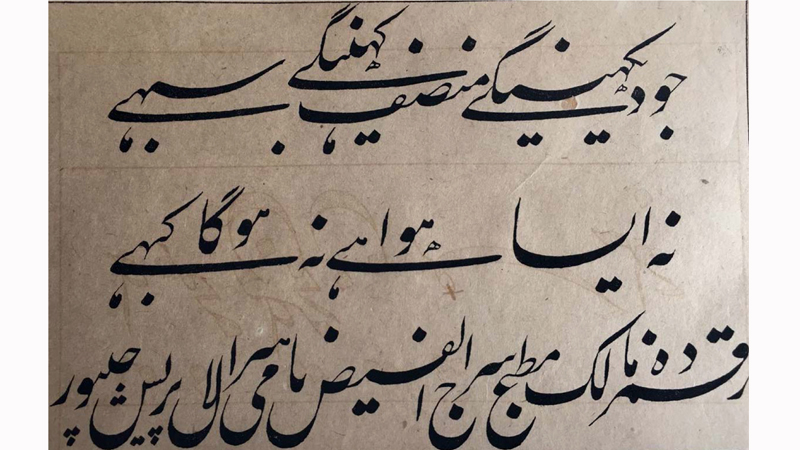 جو دیکھینگے منصف کہینگے سبہے
نہ ایسا ہوا ہے نہ ہوگا کبہے
رقمزدہ مالک مطبع سراج الفیض نامی ہیرالال پریس جیپور